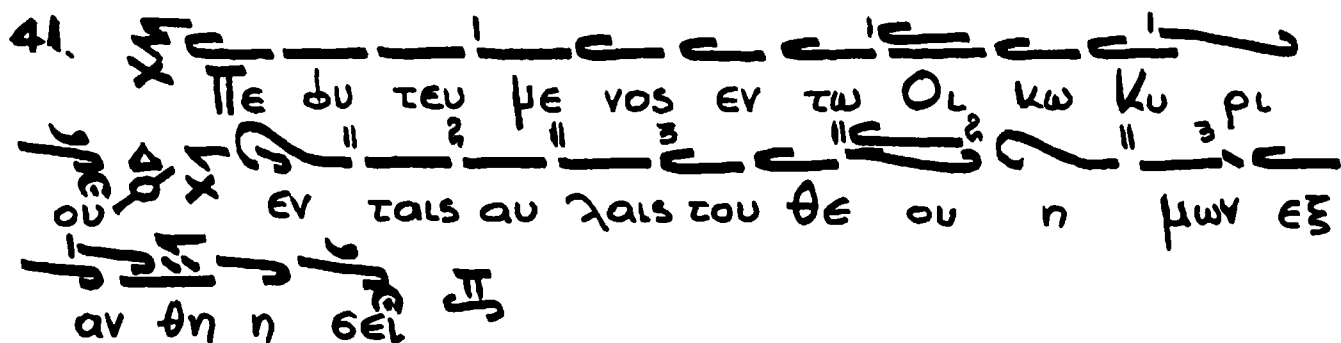 41. Πε φυ τευ με νος εν τω Οι κω Κυ ρι
ου εν ταις αυ λαις του θε ου η μων εξ
αν θη η σει